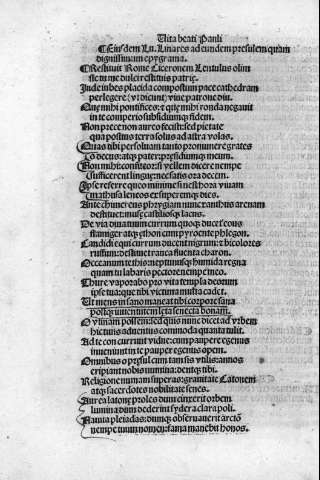 Uita beati Pauli
Eiusdem Lu. Linares ad eundem presulem quam
dignissimum epygrama.
Restituit Rome Ciceronem Lentulus olim
sic tu me dulci restituis patrie.
Inde in bes placida compostum pace cathedram
perlegere (vt dicunt) viue patrone diu.
Que mihi pontifices: et que mihi ronda negauit
in te comperio subsidiumque fidem.
Non prece non auro fecisti: sed pietate
qua positus terra solus ad astra volas.
Quas tibi persoluam tanto pro munere grates
O decus: atque pater: presidiumque meum.
Non mihi: confiteor: si vellem dicere nempe
sufficerent lingue: nec satis ora decem.
Ipse referre queo minime si nesthora viuam
mathusaleneos exsuperemque dies.
Ante chimereus phrygiam nunc tranihus arenam
destituet: musce astilios lacus.
De via diuatium currum quoque ducet eous
flamiger atque ethon cum pyroente phlegon.
Candidi equi currum ducent nigrum: et bicolores
ruffum: destituet ranca fluenta charon.
Occeanum tethis: neptunusque humida regna
quam tu labaris pectore nempe meo.
Thure vaporabo pro vita templa deorum
ipse tua: que tibi victima multa cadet.
Ut mens in sano maneat tibi corpore sana
postque viuentum leta senecta bonam.
O vtinam possem: sed quis nunc dicet ad vrbem
hic tuus aduentus commoda quanta tulit.
Ad te concurrunt vidue: cum paupere egenus
inueniunt in te pauper egenus opem.
Omnibus o presul cum tam sis vtilis: annos
eripiant nobis numina: dentque tibi.
Religione numam superas: grauitate Catonem
atque sacerdotes nobilitate senes.
Aurea latone proles dum cinxerit orbem
lumina dum dederint sydera clara poli.
Nauita pleiadas: dumque obseruauerit arcton
nempe tuum nomen: fama manebit honos.